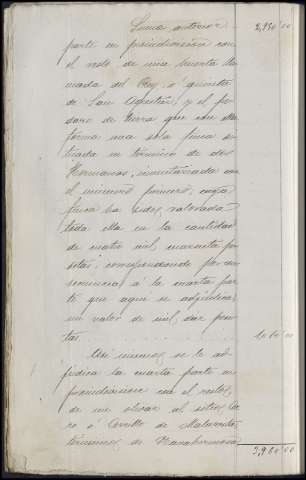 Suma anterior 2,950 00
parte en proindivision con
el resto de una huerta lla
mada del Rey, ó quinta
de San Agustin, y el pe
dazo de tierra que con ella
forma una sola finca si
tuada en término de dos
Hermanas, inventariada con
el número primero, cuya
finca ha sido valorada
toda ella en la cantidad
de cuatro mil cuarenta pe
setas, correspondiendo por con
secuencia á la cuarta par
te que aqui se adjudica,
un valor de mil diez pese
tas 1010 00
Asi mismo se le ad
judica la cuarta parte en
proindivision con el resto,
de un olivar al sitio
ro ó Cerrillo de
término de
3,960 00